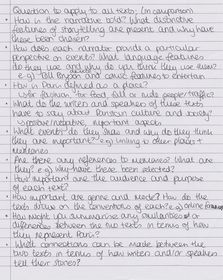 Question to apply to all texts; (in comparison)
• How is the narrative told? What distinctive
features of storytelling are present and why have
these been chosen?
• How does each narrator provide a particular
perspective on events? What language features
do they use and why do you think they use them?
e.g) Tell and comic features to entertain
• How is Paris defined as a place?
e.g) for food, full of rude people/traffic?
• What do the writers and speakers of these texts
have to say about Parisian culture and society?
positive/negative, important aspects
• What events do they share and why do they think
they are important? e.g) linking to other places +
• Are there any references to memories? What are
they? e.g) why have these been selected?
• How important are the audience and purpose
of each text?
• How important are genre and mode? How do the
texts draw on the conventions of each? e.g) online
• How might you summarise any similarities or
differences between the two texts in terms of how
they represent Paris?
• What connections can be made between the
two texts in terms of how writers and/or speakers
tell their stories?